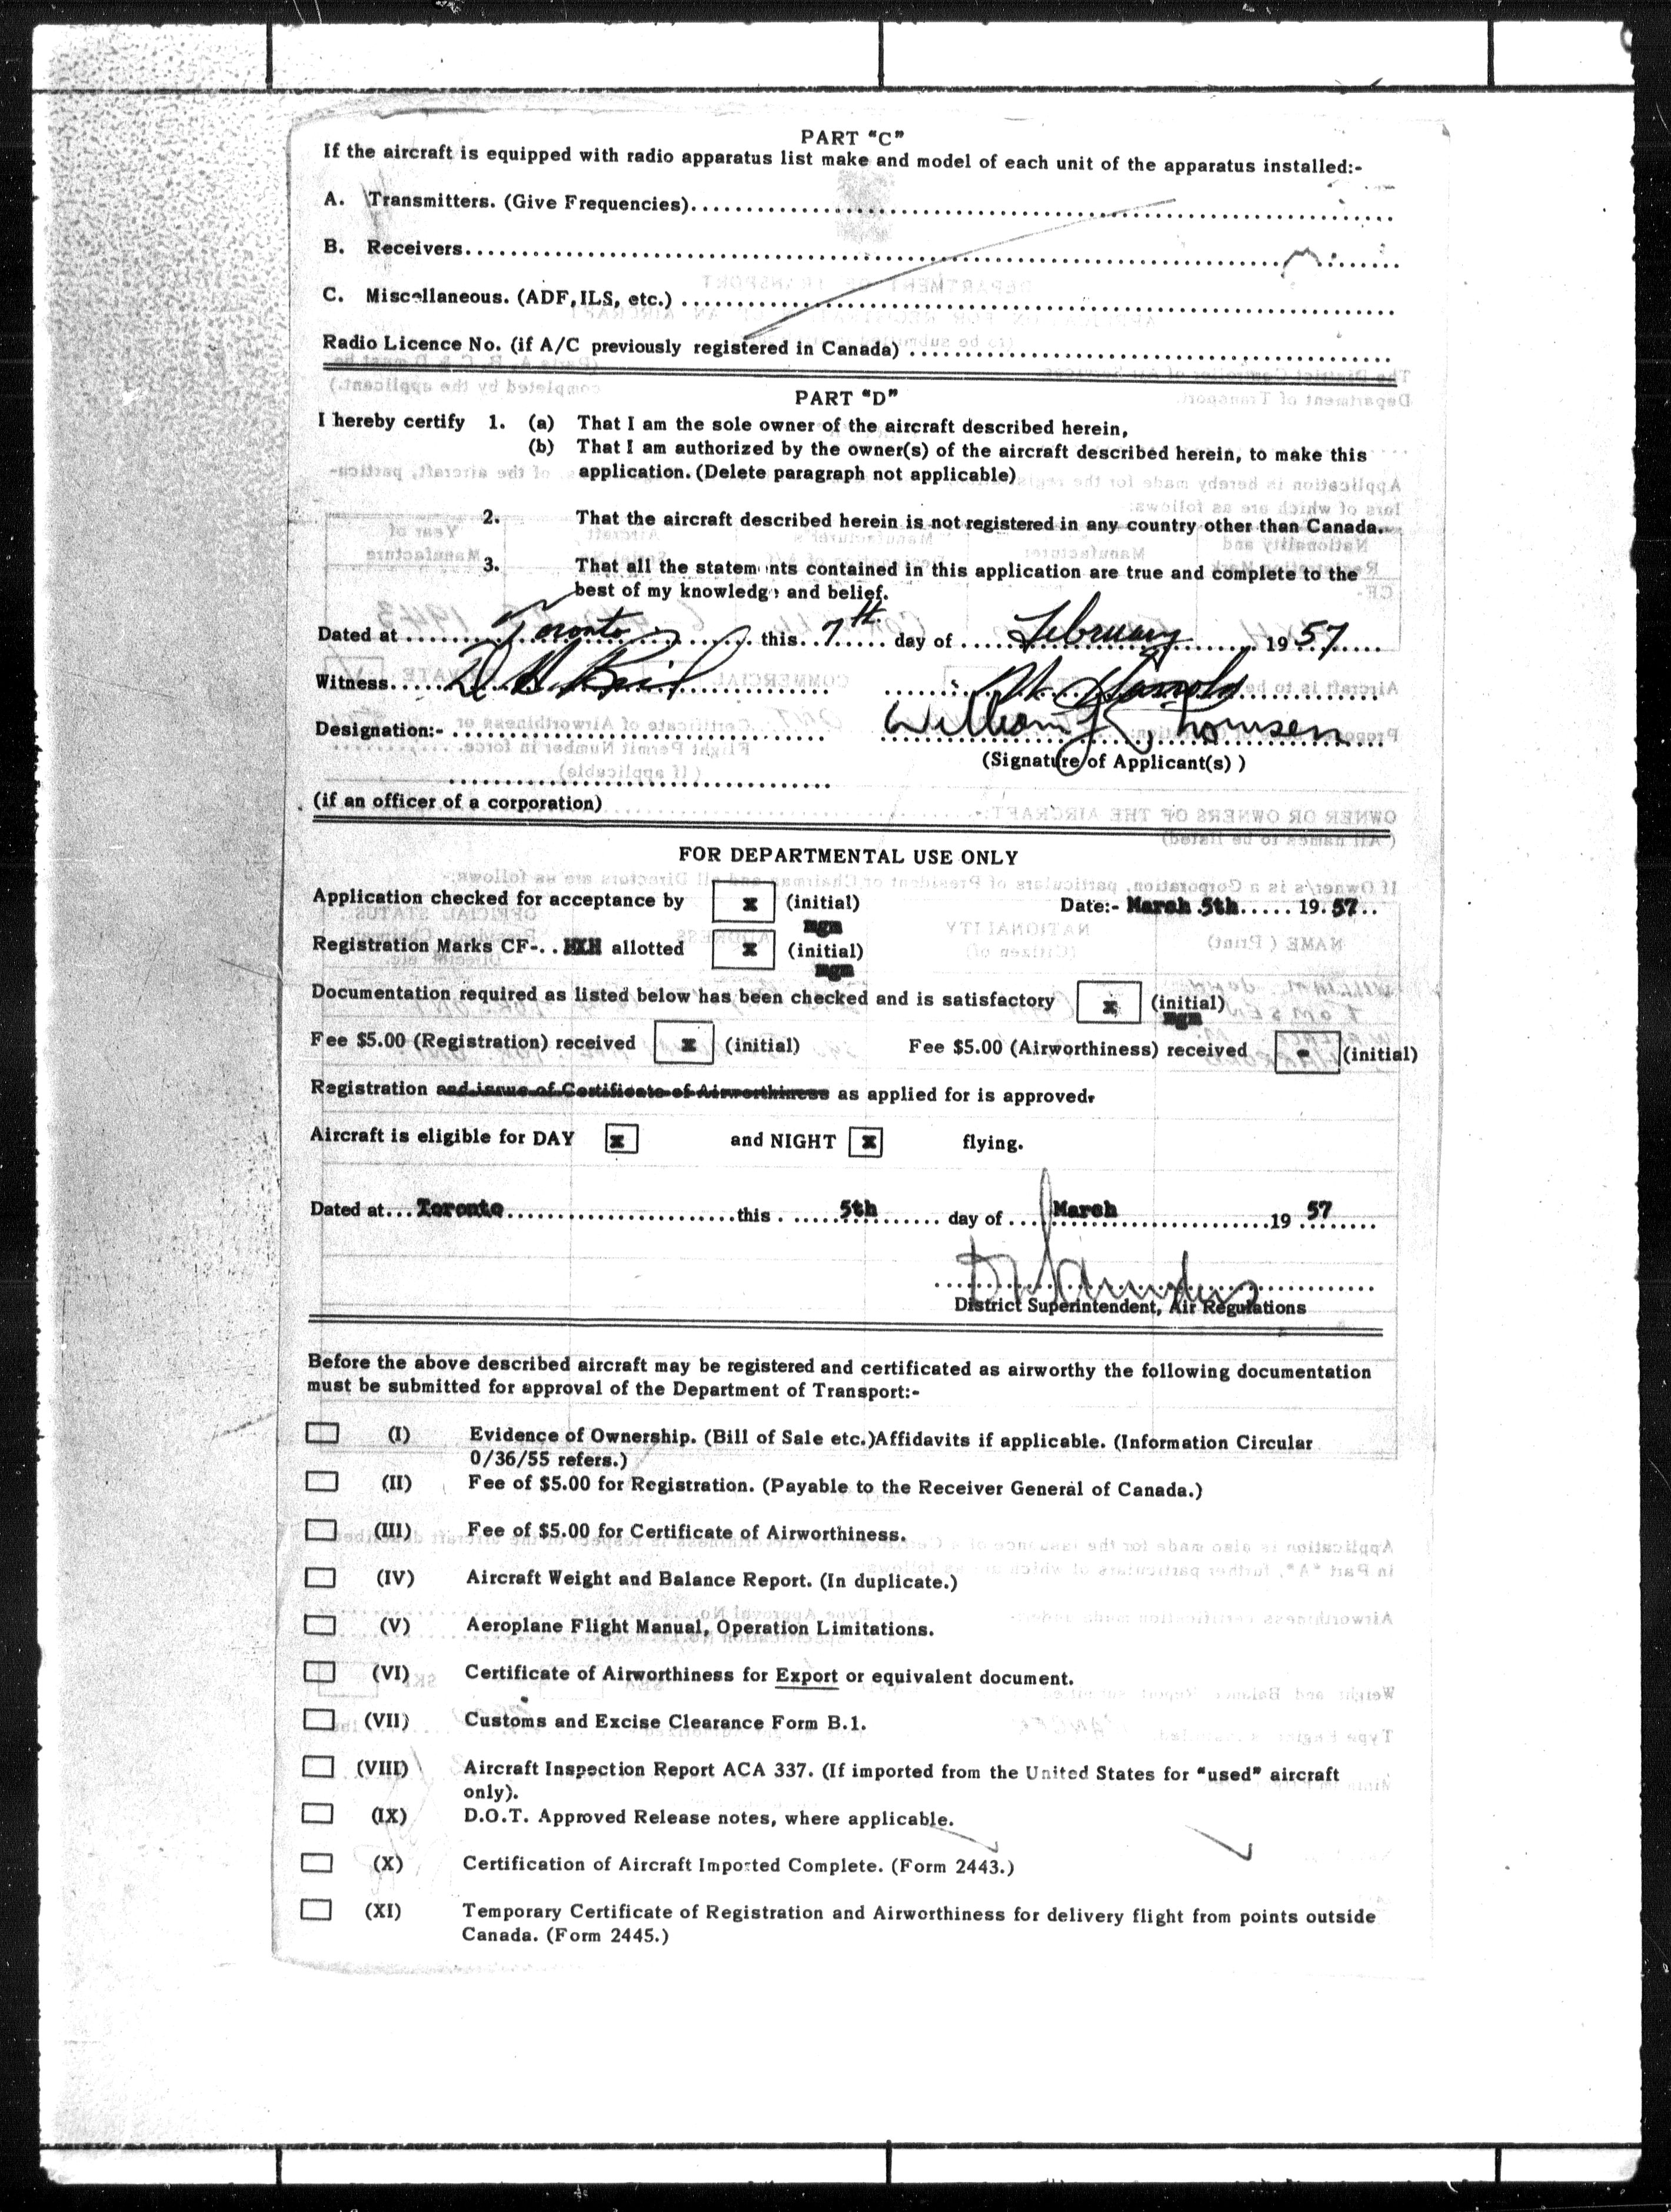 PART "C"
If the aircraft is equipped with radio apparatus list make and model of each unit of the apparatus installed:-
A. Transmitters. (Give Frequencies)
B. Receivers
C. Miscellaneous. (ADF, ILS, etc.)
Radio Licence No. (if A/C previously registered in Canada)
PART "D"
I hereby certify 1. (a) That I am the sole owner of the aircraft described herein,
(b) That I am authorized by the owner(s) of the aircraft described herein, to make this
application. (Delete paragraph not applicable)
2. That the aircraft described herein is not registered in any country other than Canada.
3. That all the statements contained in this application are true and complete to the
best of my knowledge and belief.
Dated at Toronto this 7th day of February 1957
Witness
William J. Thomsen
Designation:-
(Signature of Applicant(s) )
(if an officer of a corporation)
FOR DEPARTMENTAL USE ONLY
Application checked for acceptance by x (initial) Date:- March 5th 19.57
mgm
Registration Marks CF-. . HXH allotted x (initial)
mgm
Documentation required as listed below has been checked and is satisfactory x (initial)
mgm
Fee $5.00 (Registration) received x (initial) Fee $5.00 (Airworthiness) received - (initial)
Registration and issue of Certificate of Airworthiness as applied for is approved.
Aircraft is eligible for DAY x and NIGHT x flying.
Dated at Toronto this 5th day of March 19 57
District Superintendent, Air Regulations
Before the above described aircraft may be registered and certificated as airworthy the following documentation
must be submitted for approval of the Department of Transport:-
(I) Evidence of Ownership. (Bill of Sale etc.)Affidavits if applicable. (Information Circular
0/36/55 refers.)
(II) Fee of $5.00 for Registration. (Payable to the Receiver General of Canada.)
(III) Fee of $5.00 for Certificate of Airworthiness.
(IV) Aircraft Weight and Balance Report. (In duplicate.)
(V) Aeroplane Flight Manual, Operation Limitations.
(VI) Certificate of Airworthiness for Export or equivalent document.
(VII) Customs and Excise Clearance Form B.1.
(VIII) Aircraft Inspection Report ACA 337. (If imported from the United States for "used" aircraft
only).
(IX) D.O.T. Approved Release notes, where applicable.
(X) Certification of Aircraft Imported Complete. (Form 2443.)
(XI) Temporary Certificate of Registration and Airworthiness for delivery flight from points outside
Canada. (Form 2445.)